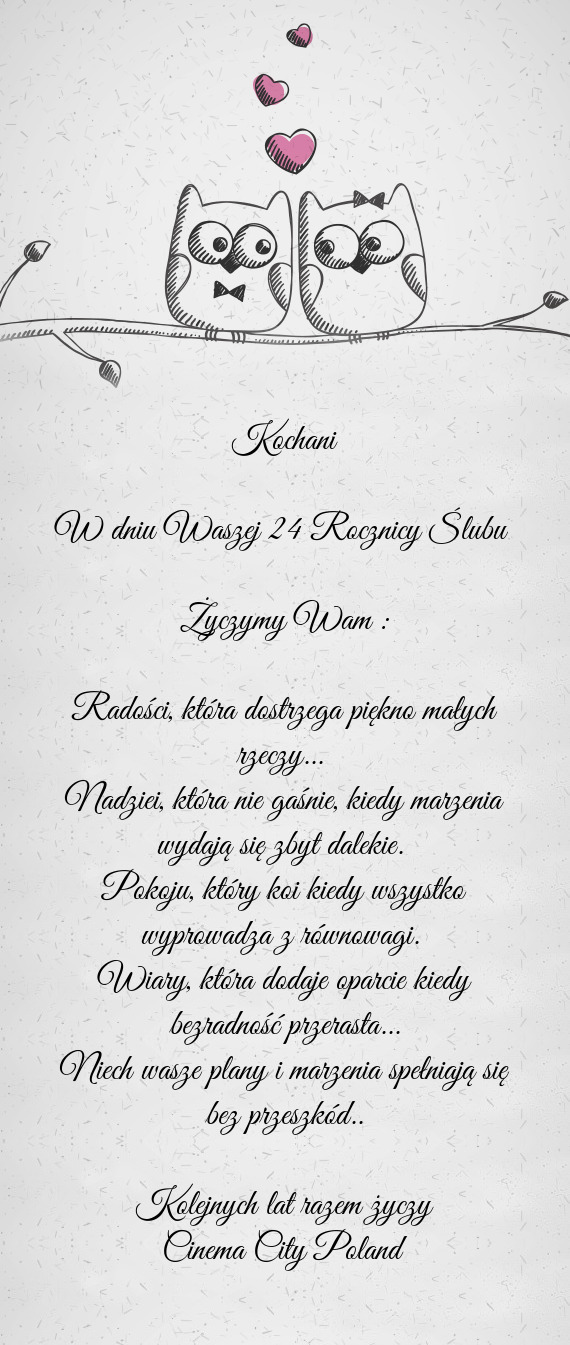 Kochani
W dniu Waszej 24 Rocznicy Ślubu
Życzymy Wam :
Radości, która dostrzega piękno małych
rzeczy...
Nadziei, która nie gaśnie, kiedy marzenia
wydają się zbyt dalekie.
Pokoju, który koi kiedy wszystko
wyprowadza z równowagi.
Wiary, która dodaje oparcie kiedy
bezradność przerasta...
Niech wasze plany i marzenia spełniają się
bez przeszkód..
Kolejnych lat razem życzy
Cinema City Poland